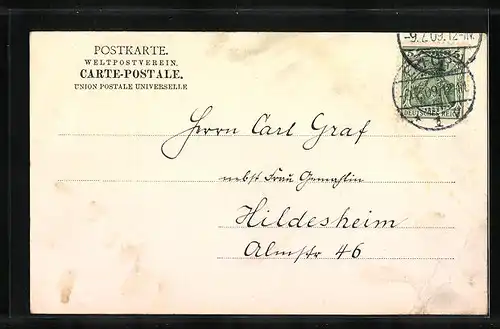 POSTKARTE.
WELTPOSTVEREIN.
CARTE-POSTALE.
UNION POSTALE UNIVERSELLE
-9.2.09.12-1N.
DEUTSCHES REICH
Herrn Carl Graf
nebst Frau Gemahlin
Hildesheim
Almstr 46